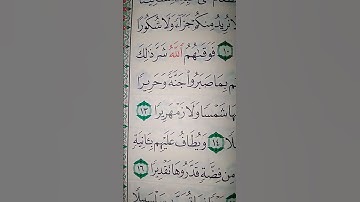 لَا نُرِيدُ مِنكُمْ جَزَآءً وَلَا شُكُورًا
١٠ فَوَقَىٰهُمُ ٱللَّهُ شَرَّ ذَٰلِكَ
بِمَا صَبَرُوا۟ جَنَّةً وَحَرِيرًا
شَمْسًا وَلَا زَمْهَرِيرًا ١٣
١٤ وَيُطَافُ عَلَيْهِم بِـَٔانِيَةٍ
مِن فِضَّةٍ قَدَّرُوهَا تَقْدِيرًا ١٦